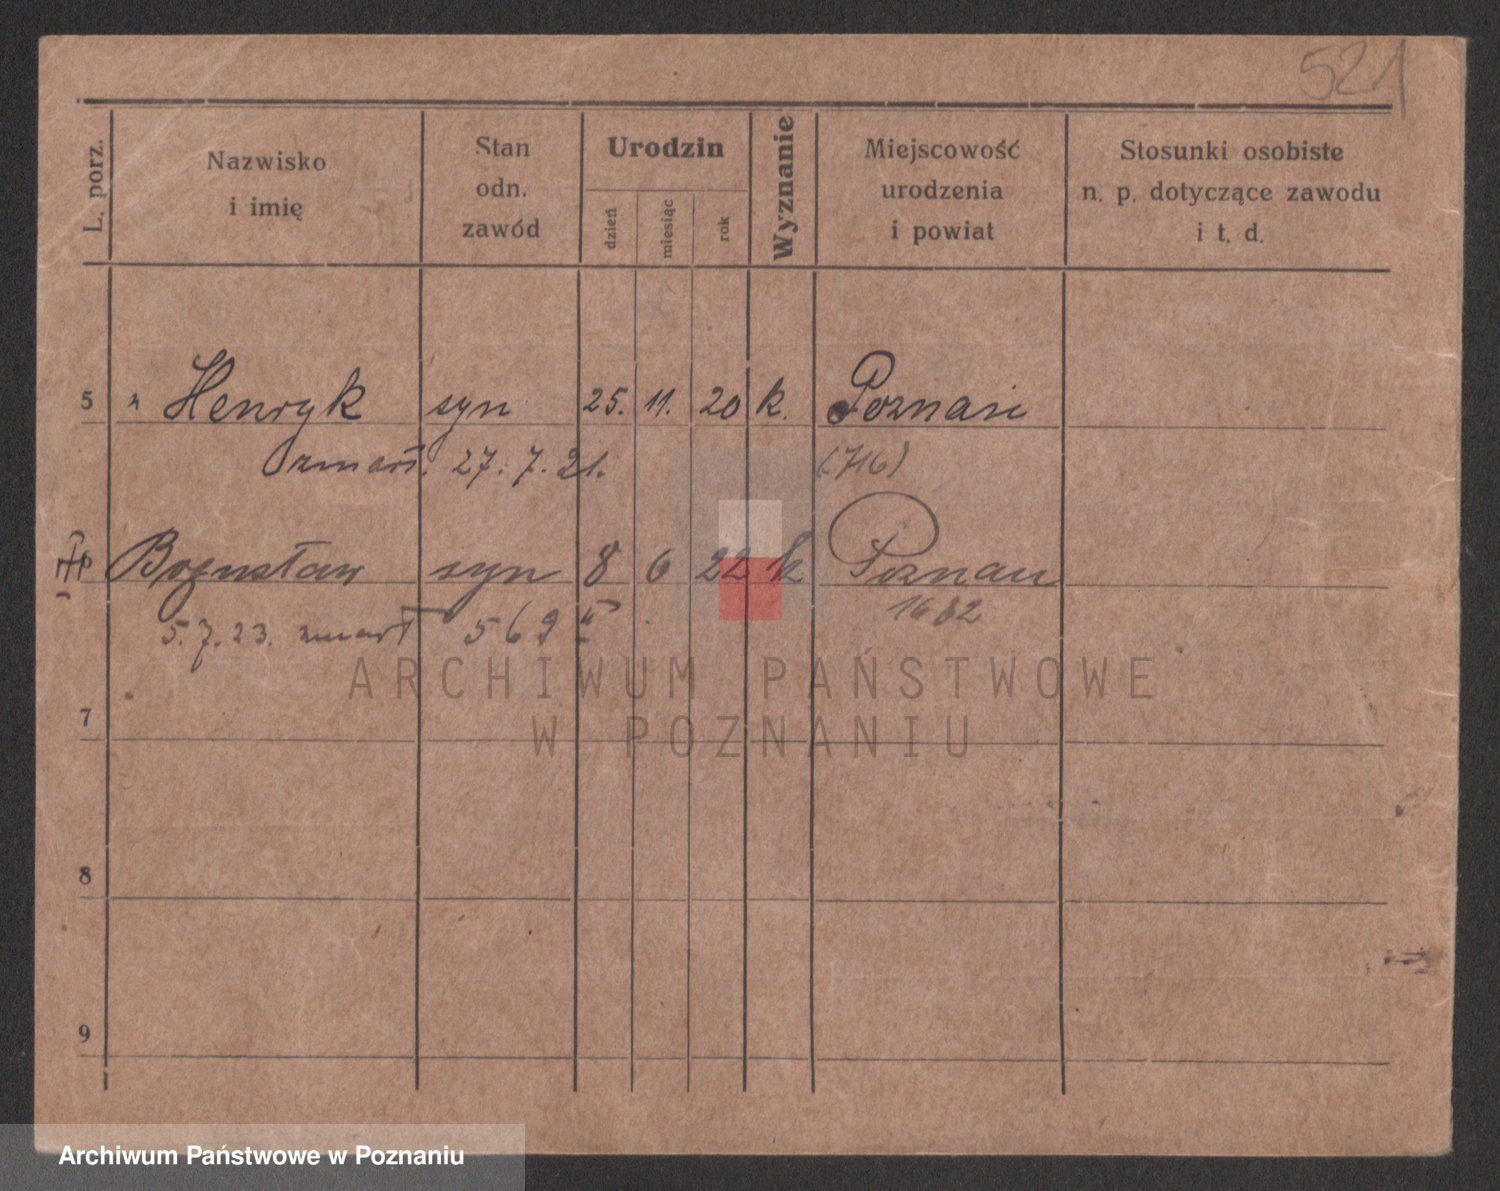 521
L. porz.
Nazwisko
i imię
Stan
odn.
zawód
Urodzin
dzień
miesiąc
rok
Wyznanie
Miejscowość
urodzenia
i powiat
Stosunki osobiste
n. p. dotyczące zawodu
i t. d.
5 " Henryk syn 25. 11. 20 k. Poznań
zmarł. 27. 7. 21. (716)
Bogusław syn 8 6 22 k Poznań
5. 7. 23. zmarł 569 II 1682
ARCHIWUM PAŃSTWOWE
W POZNANIU
7
8
9
Archiwum Państwowe w Poznaniu